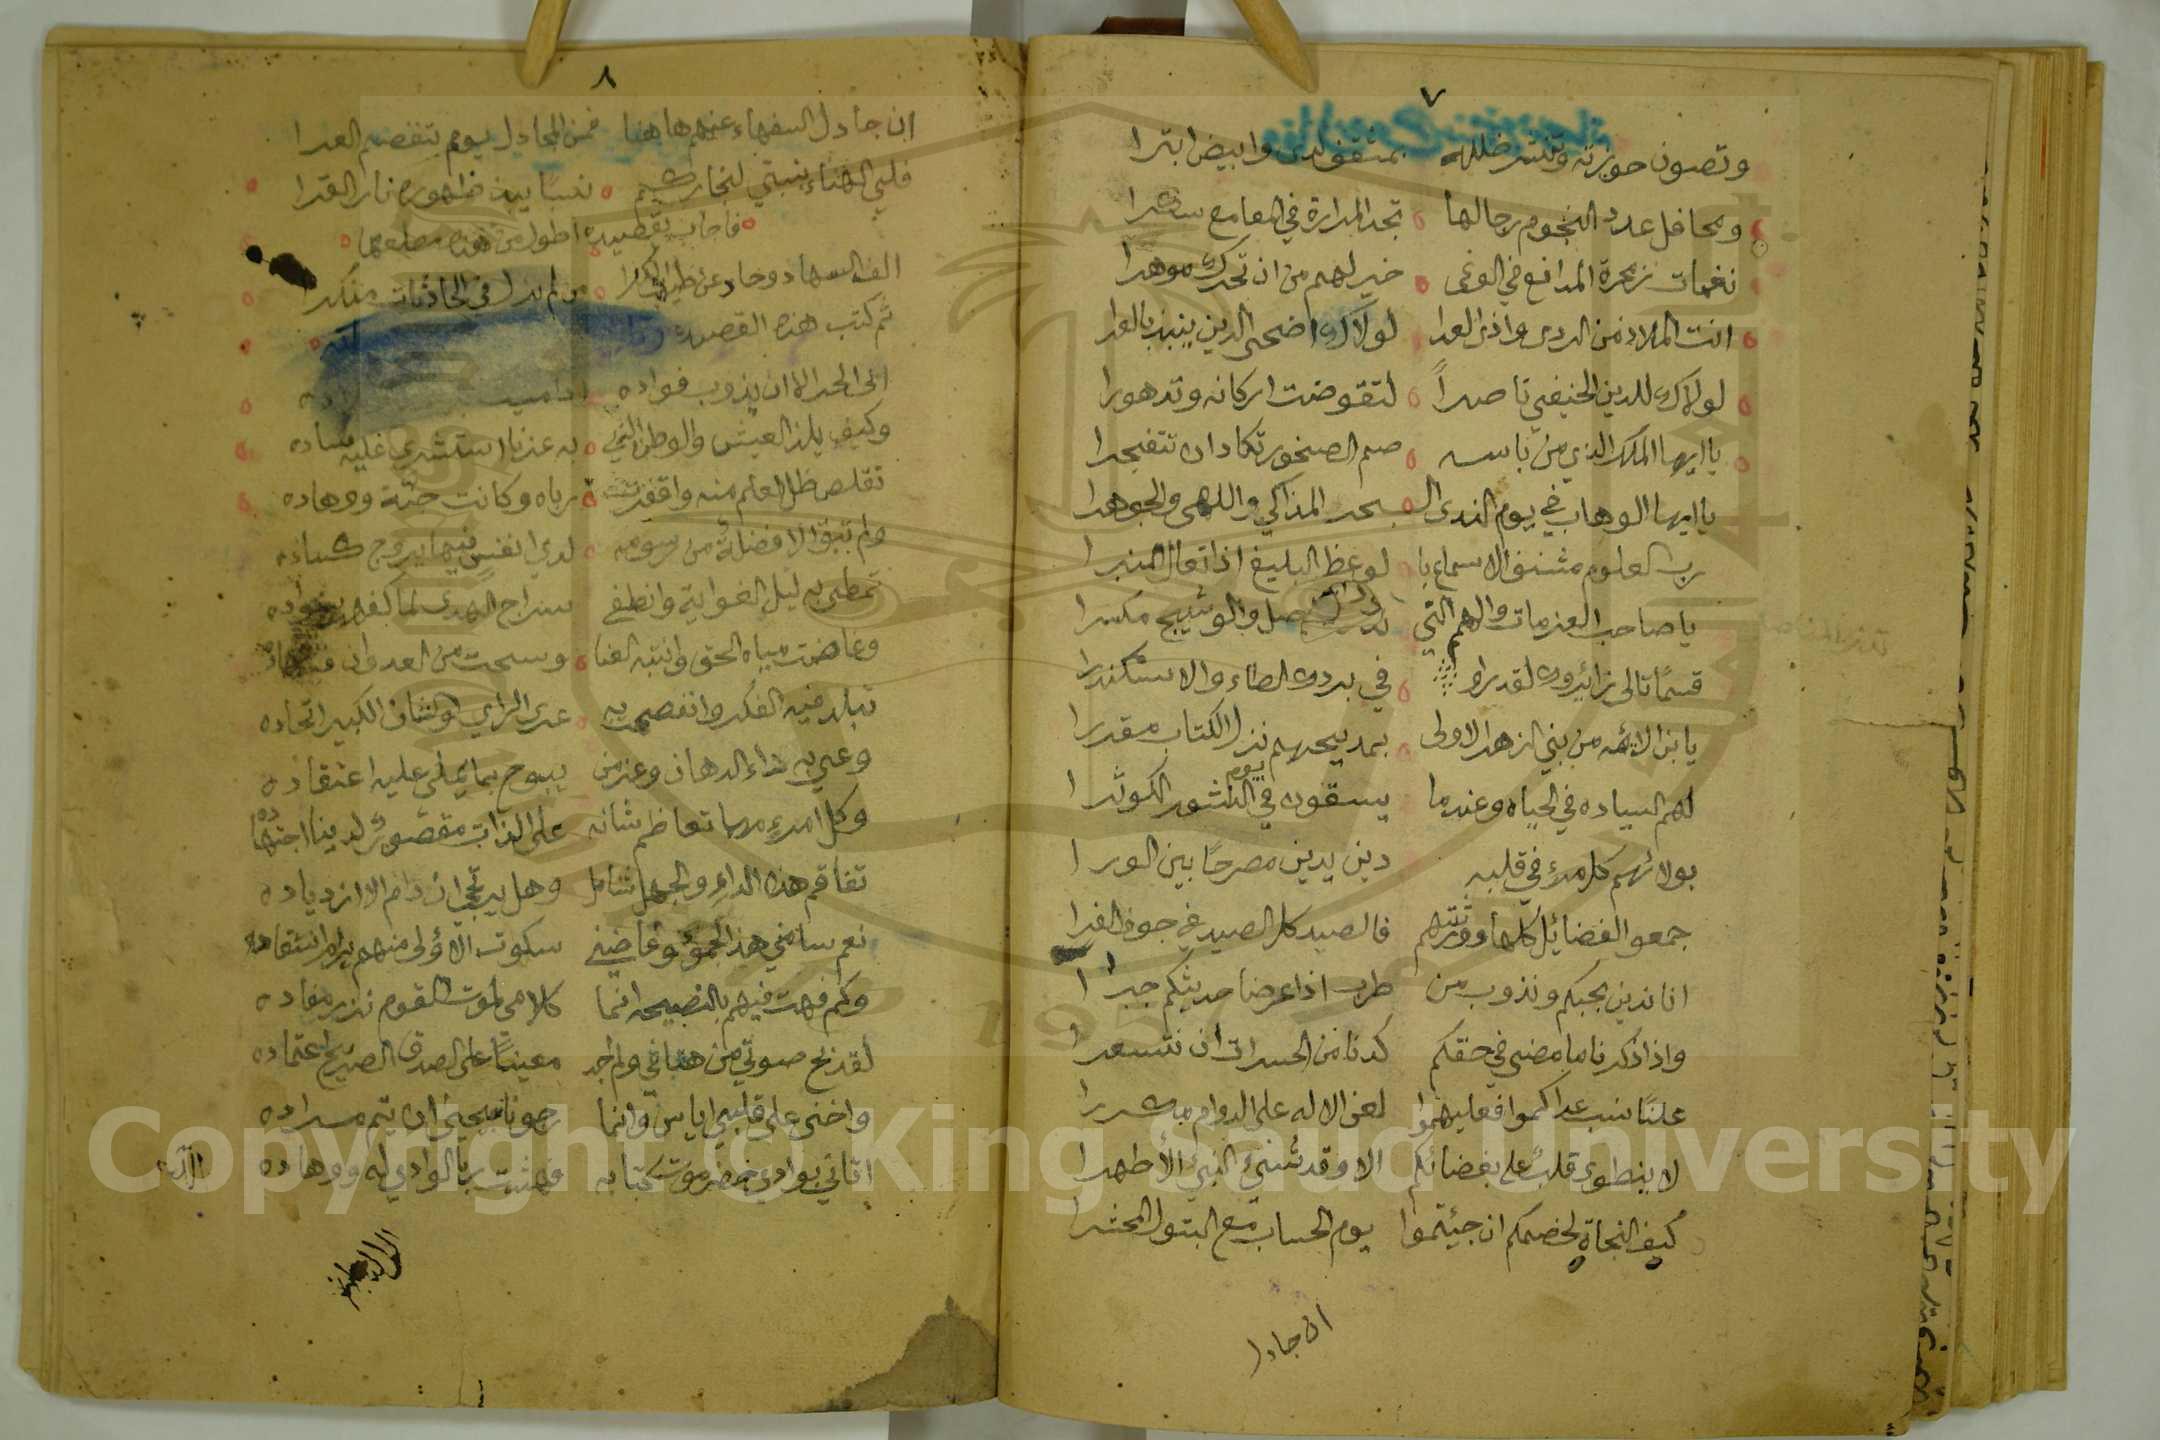 ٧
وتصون حوزته وتنشر ظلله بمثقف لدن وابيض ابترا
ومحافل عدد النجوم رجالها تجد المدارة في المعامع سكرا
نغمات زمجرة المدافع في الوغى خير لهم من ان تحرك موهرا
انت الملاذ من الردى واذى العدا لولاك اضحى الدين ينبذ بالعرا
لولاك للدين الحنيفي ناصراً لتقوضت اركانه وتدهورا
يا ايها الملك الذي من باسه صم الصخور تكاد ان تتفجرا
يا ايها الوهاب في يوم الندى البحر المذاكي واللهى والجوهرا
رب العلوم مشنف الاسماع بالوعظ البليغ اذا تعالى المنبرا
يا صاحب العزمات والهمم التي والوشيج مكسرا
قسمًا تالى زائيروك لقد راو في بردك الطاء والاسكندرا
يا بن الائمه من بني الزهرا الاولى بمديحهم نزل الكتاب مقررا
لهم السياده في الحياه وعندما يسقون في يوم النشور الكوثرا
بولائهم كل امرء في قلبه دين يدين مصرحًا بين الورا
جمعو الفضائل كلها وورثتهم فالصيد كل الصيد في جوف الفرا
انا ندين بحبكم ونذوب من طرب اذا عرضا حديثكم جرا
واذا ذكرنا ما مضى في حقكم كدنا من الحسرات ان نتسعرا
علنًا بسب عداكموا فعليهموا لعن الاله على الدوام مكررا
لا ينطوي قلب على بغضائكم الا وقد شنئ النبي الأطهرا
كيف النجاة لخصمكم ان جيئتموا يوم الحساب مع البتول المحشرا
ان جادل
٨
ان جادل السفهاء عنهم هاهنا فمن المجادل يوم تنفصم العرا
فليي الهناء بنسبتي لنجاركم نسبًا يبذ ظهوره نار القرا
فاجاب بقصيده اطول من هذه مطلعها
الف السهاد وحاد عن طيب الكرا من لم يزل في الحادثات مفكرا
ثم كتب هذه القصيده
اخي الحر الا ان يذوب فواده
وكيف يلذ العيش والوطن الذي به عزنا استشرى عليه فساده
تقلص ظل العلم منه واقفرت رباه وكانت جنّة ووهاده
ولم تبق الا فضلةٌ من رسومه لدي انفس فيها يروج كساده
تمطى به ليل الغواية وانطفى سراج الهدى لما كفهر سواده
وغاضت مياه الحق وانتبه الفنا وسحت من العدوان فيه
تبلد فيه الفكر وانفصمت به عرى الراي لو شان الكبير اتحاده
وعي به داء الدهان وعز من يبوح بما يملي عليه اعتقاده
وكل امرء مهما تعاظم شانه على الذات مقصور لدينا اجتهاده
تفاقم هذا الداء والجهل شامل وهل يرتجى ان دام الا ازدياده
نعم سامني هذا الجمود وغاضني سكوت الاولى منهم يرام انتقاده
وكم فهت فيهم بالنصيحه انما كلامي لموت القوم نزر مفاده
لقد بح صوتي من هتافي ولم اجد معينًا على الصدق الصريح اعتماده
واخنى على قلبي اياس وانما رجونا بيحيى ان يتم مراده
اتاني بوادي حضرموت كتابه فهشت ربا الوادي له ووهاده